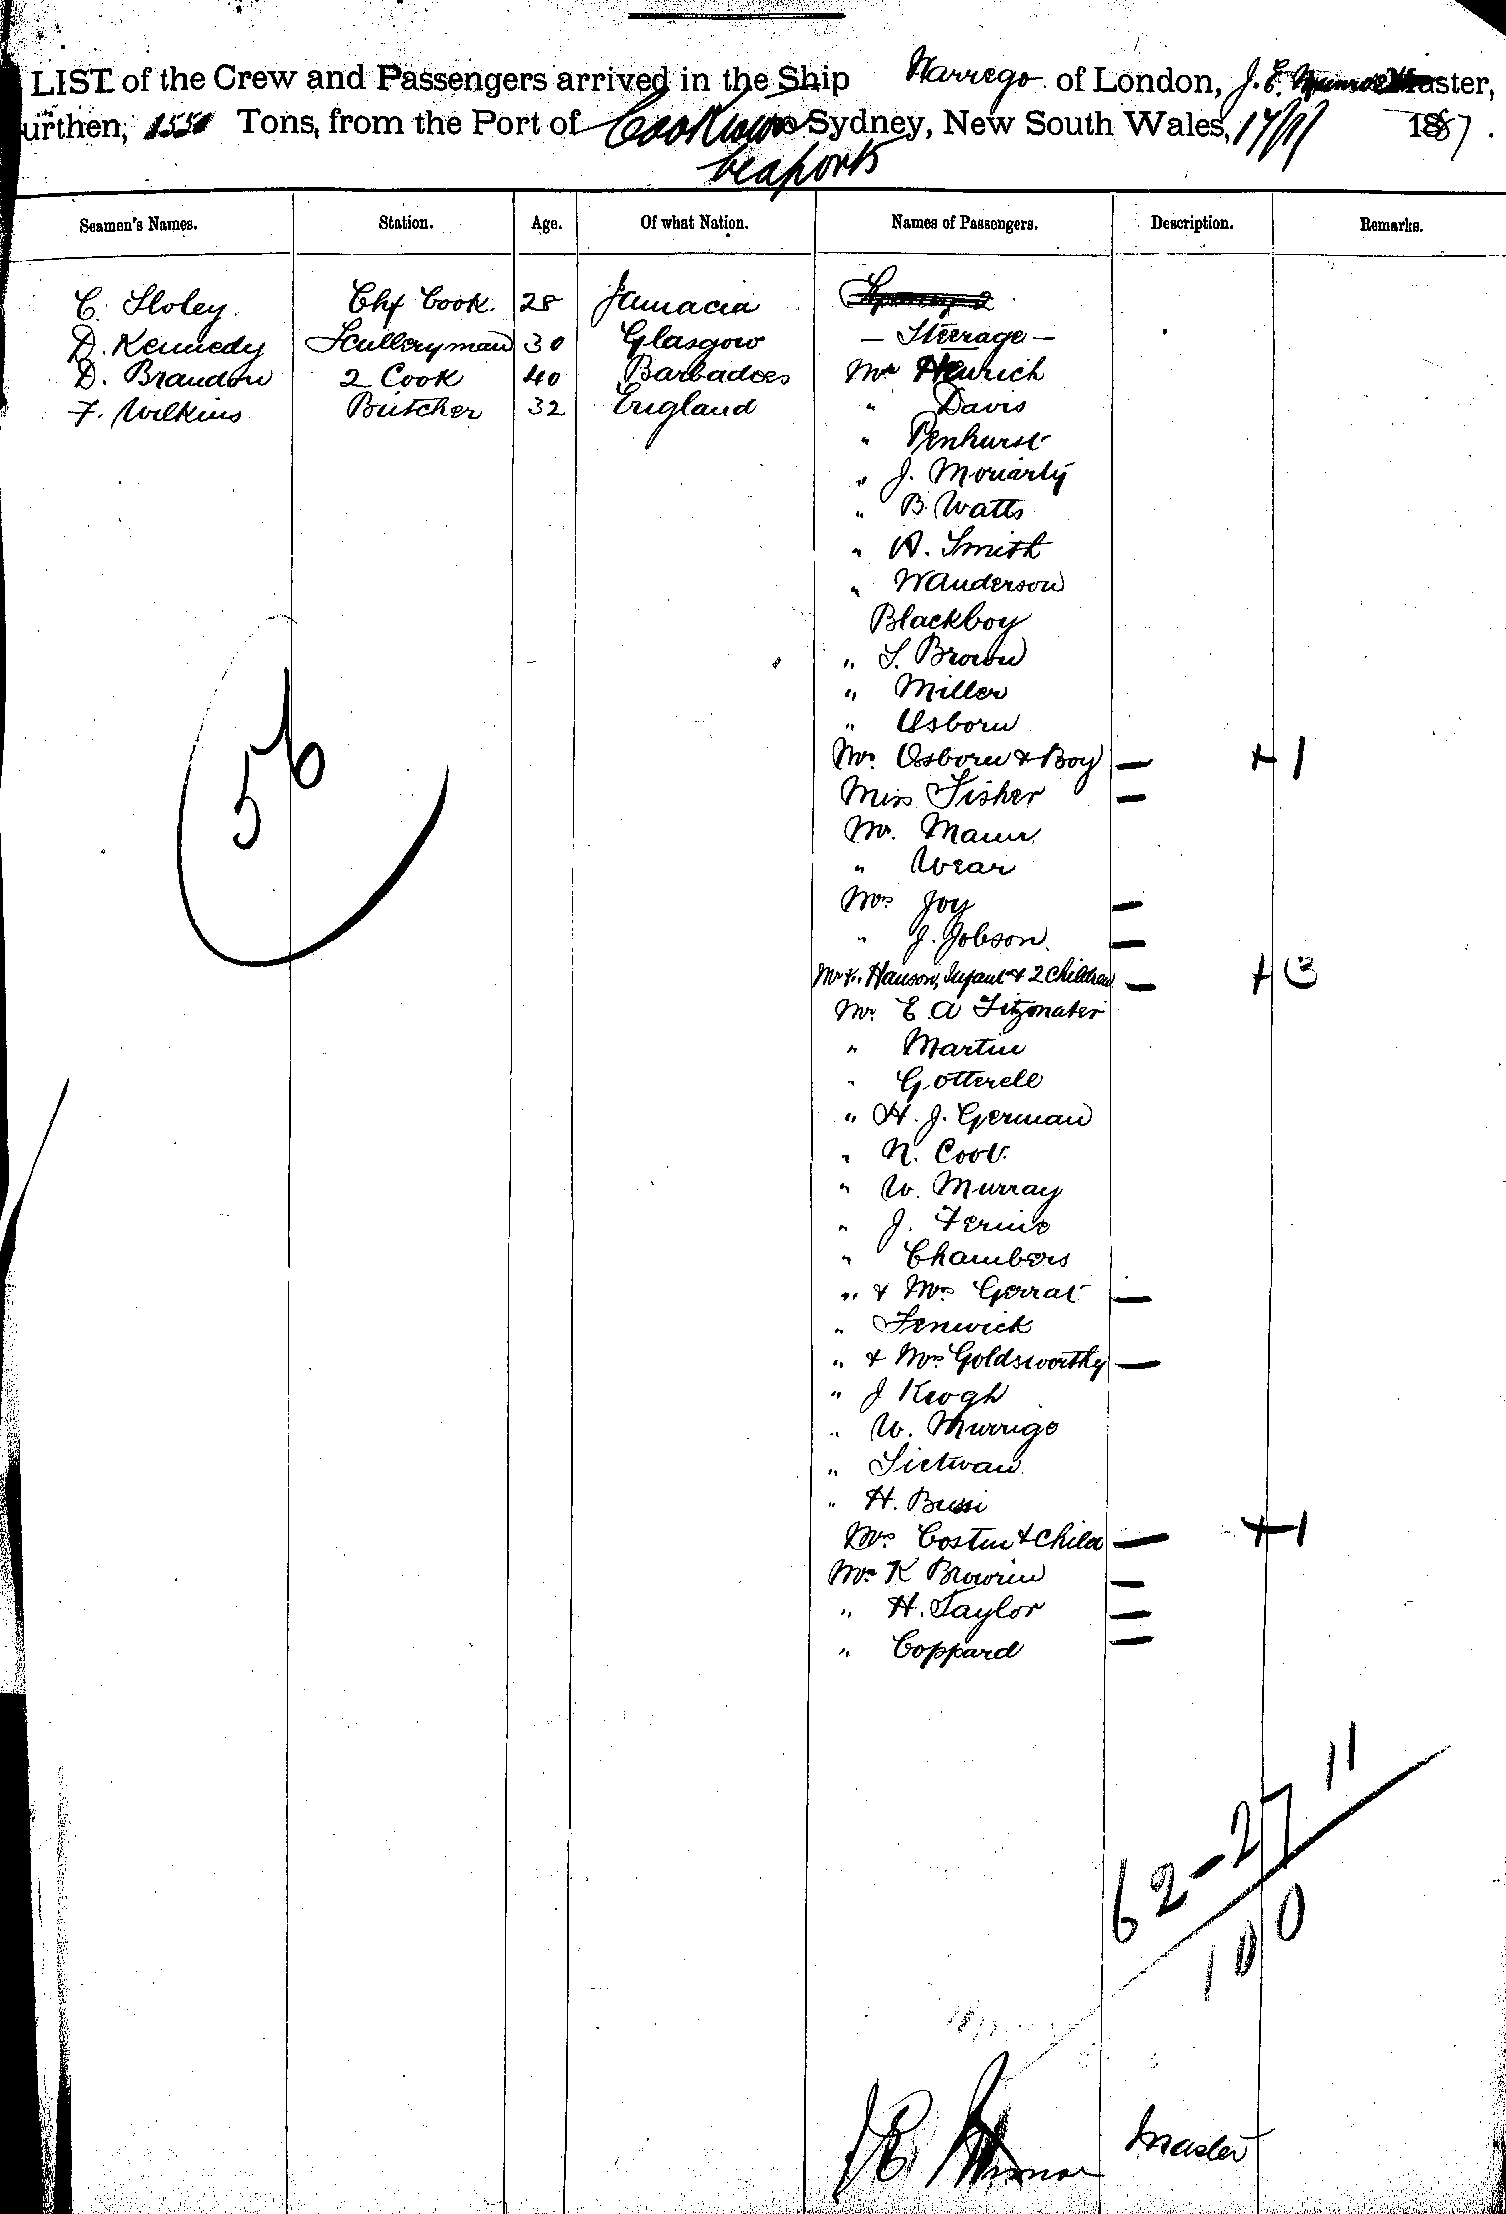 LIST of the Crew and Passengers arrived in the Ship Warrego of London, J. E. Munro Master,
urthen, 1550 Tons, from the Port of Cooktown Sydney, New South Wales, 17/11/ 1887.
& ports
Seamen's Names. Station. Age. Of what Nation. Names of Passengers. Description. Remarks.
C. Sloley. Chf Cook. 28 Jamacia
D. Kennedy Sculleryman 30 Glasgow — Steerage —
D. Brandon 2 Cook 40 Barbadoes Mr Heurich
F. Wilkins Butcher 32 England " Davis
" Penhurst
" J. Moriarty
" B. Watts
" A. Smith
" W Anderson
Blackboy
" S. Brown
" Miller
" Osborn
Mrs. Osborn & Boy — + 1
Miss Fisher —
Mr. Mann
" Wear
Mrs Joy —
" J. Jobson. —
Mr & Mrs Hanson, Infant & 2 Children — + 3
Mr. E A Fitzmater
" Martin
" Gotterell
" H. J. German
" N. Cook
" W. Murray
" J. Fernie
" Chambers
" & Mrs Gerrat —
" Fenwick
" & Mrs Goldsworthy —
" J Keogh
" W.
"
" H. Bussi
Mrs Costin & Child — + 1
Mrs K —
" H. Taylor —
" Coppard —
56
62 - 27 11
100
J E Munro Master